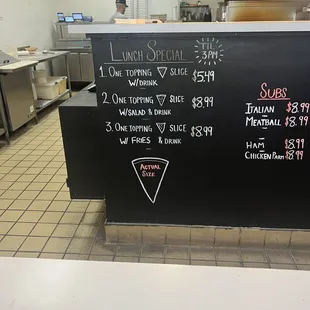 LUNCH SPECIAL TIL 3PM
1. ONE TOPPING SLICE $5.49
W/ DRINK
2. ONE TOPPING SLICE $8.99
W/ SALAD & DRINK
3. ONE TOPPING SLICE $8.99
W/ FRIES & DRINK
ACTUAL
SIZE
SUBS
ITALIAN $8.99
MEATBALL $8.99
HAM $8.99
CHICKEN PARM $8.99